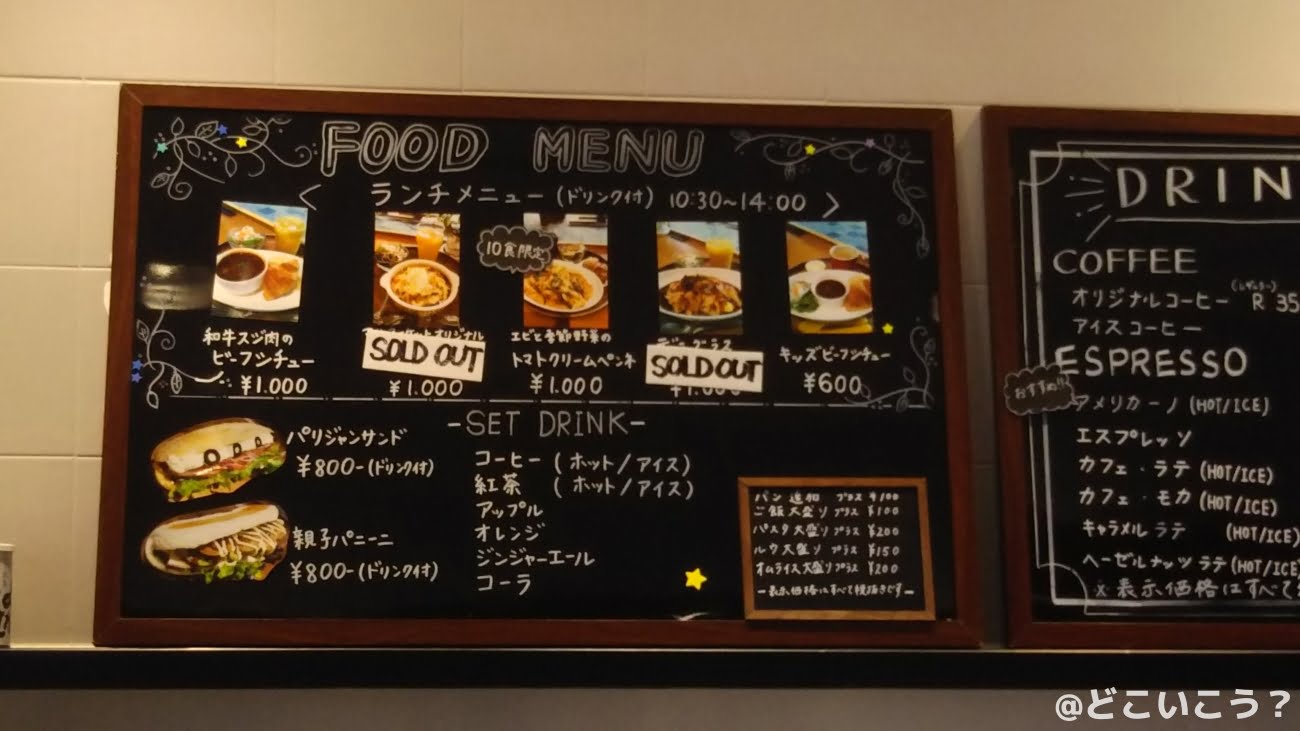 FOOD MENU
< ランチメニュー (ドリンク付) 10:30~14:00 >
10食限定
和牛スジ肉の
ビーフシチュー
¥1.000
オリジナル
SOLD OUT
¥1.000
エビと季節野菜の
トマトクリームペンネ
¥1.000
SOLD OUT
¥1.000
キッズビーフシチュー
¥600
パリジャンサンド
¥800-(ドリンク付)
親子パニーニ
¥800-(ドリンク付)
-SET DRINK-
コーヒー (ホット/アイス)
紅茶 (ホット/アイス)
アップル
オレンジ
ジンジャーエール
コーラ
パン追加 プラス ¥100
ご飯大盛り プラス ¥100
パスタ大盛り プラス ¥200
ルウ大盛り プラス ¥150
オムライス大盛り プラス ¥200
-表示価格はすべて税抜きです-
DRIN
COFFEE
オリジナルコーヒー (レギュラー) R 35
アイスコーヒー
ESPRESSO
おすすめ!!
アメリカーノ (HOT/ICE)
エスプレッソ
カフェ・ラテ (HOT/ICE)
カフェ・モカ (HOT/ICE)
キャラメルラテ (HOT/ICE)
ヘーゼルナッツラテ (HOT/ICE)
※表示価格はすべて
@どこいこう？